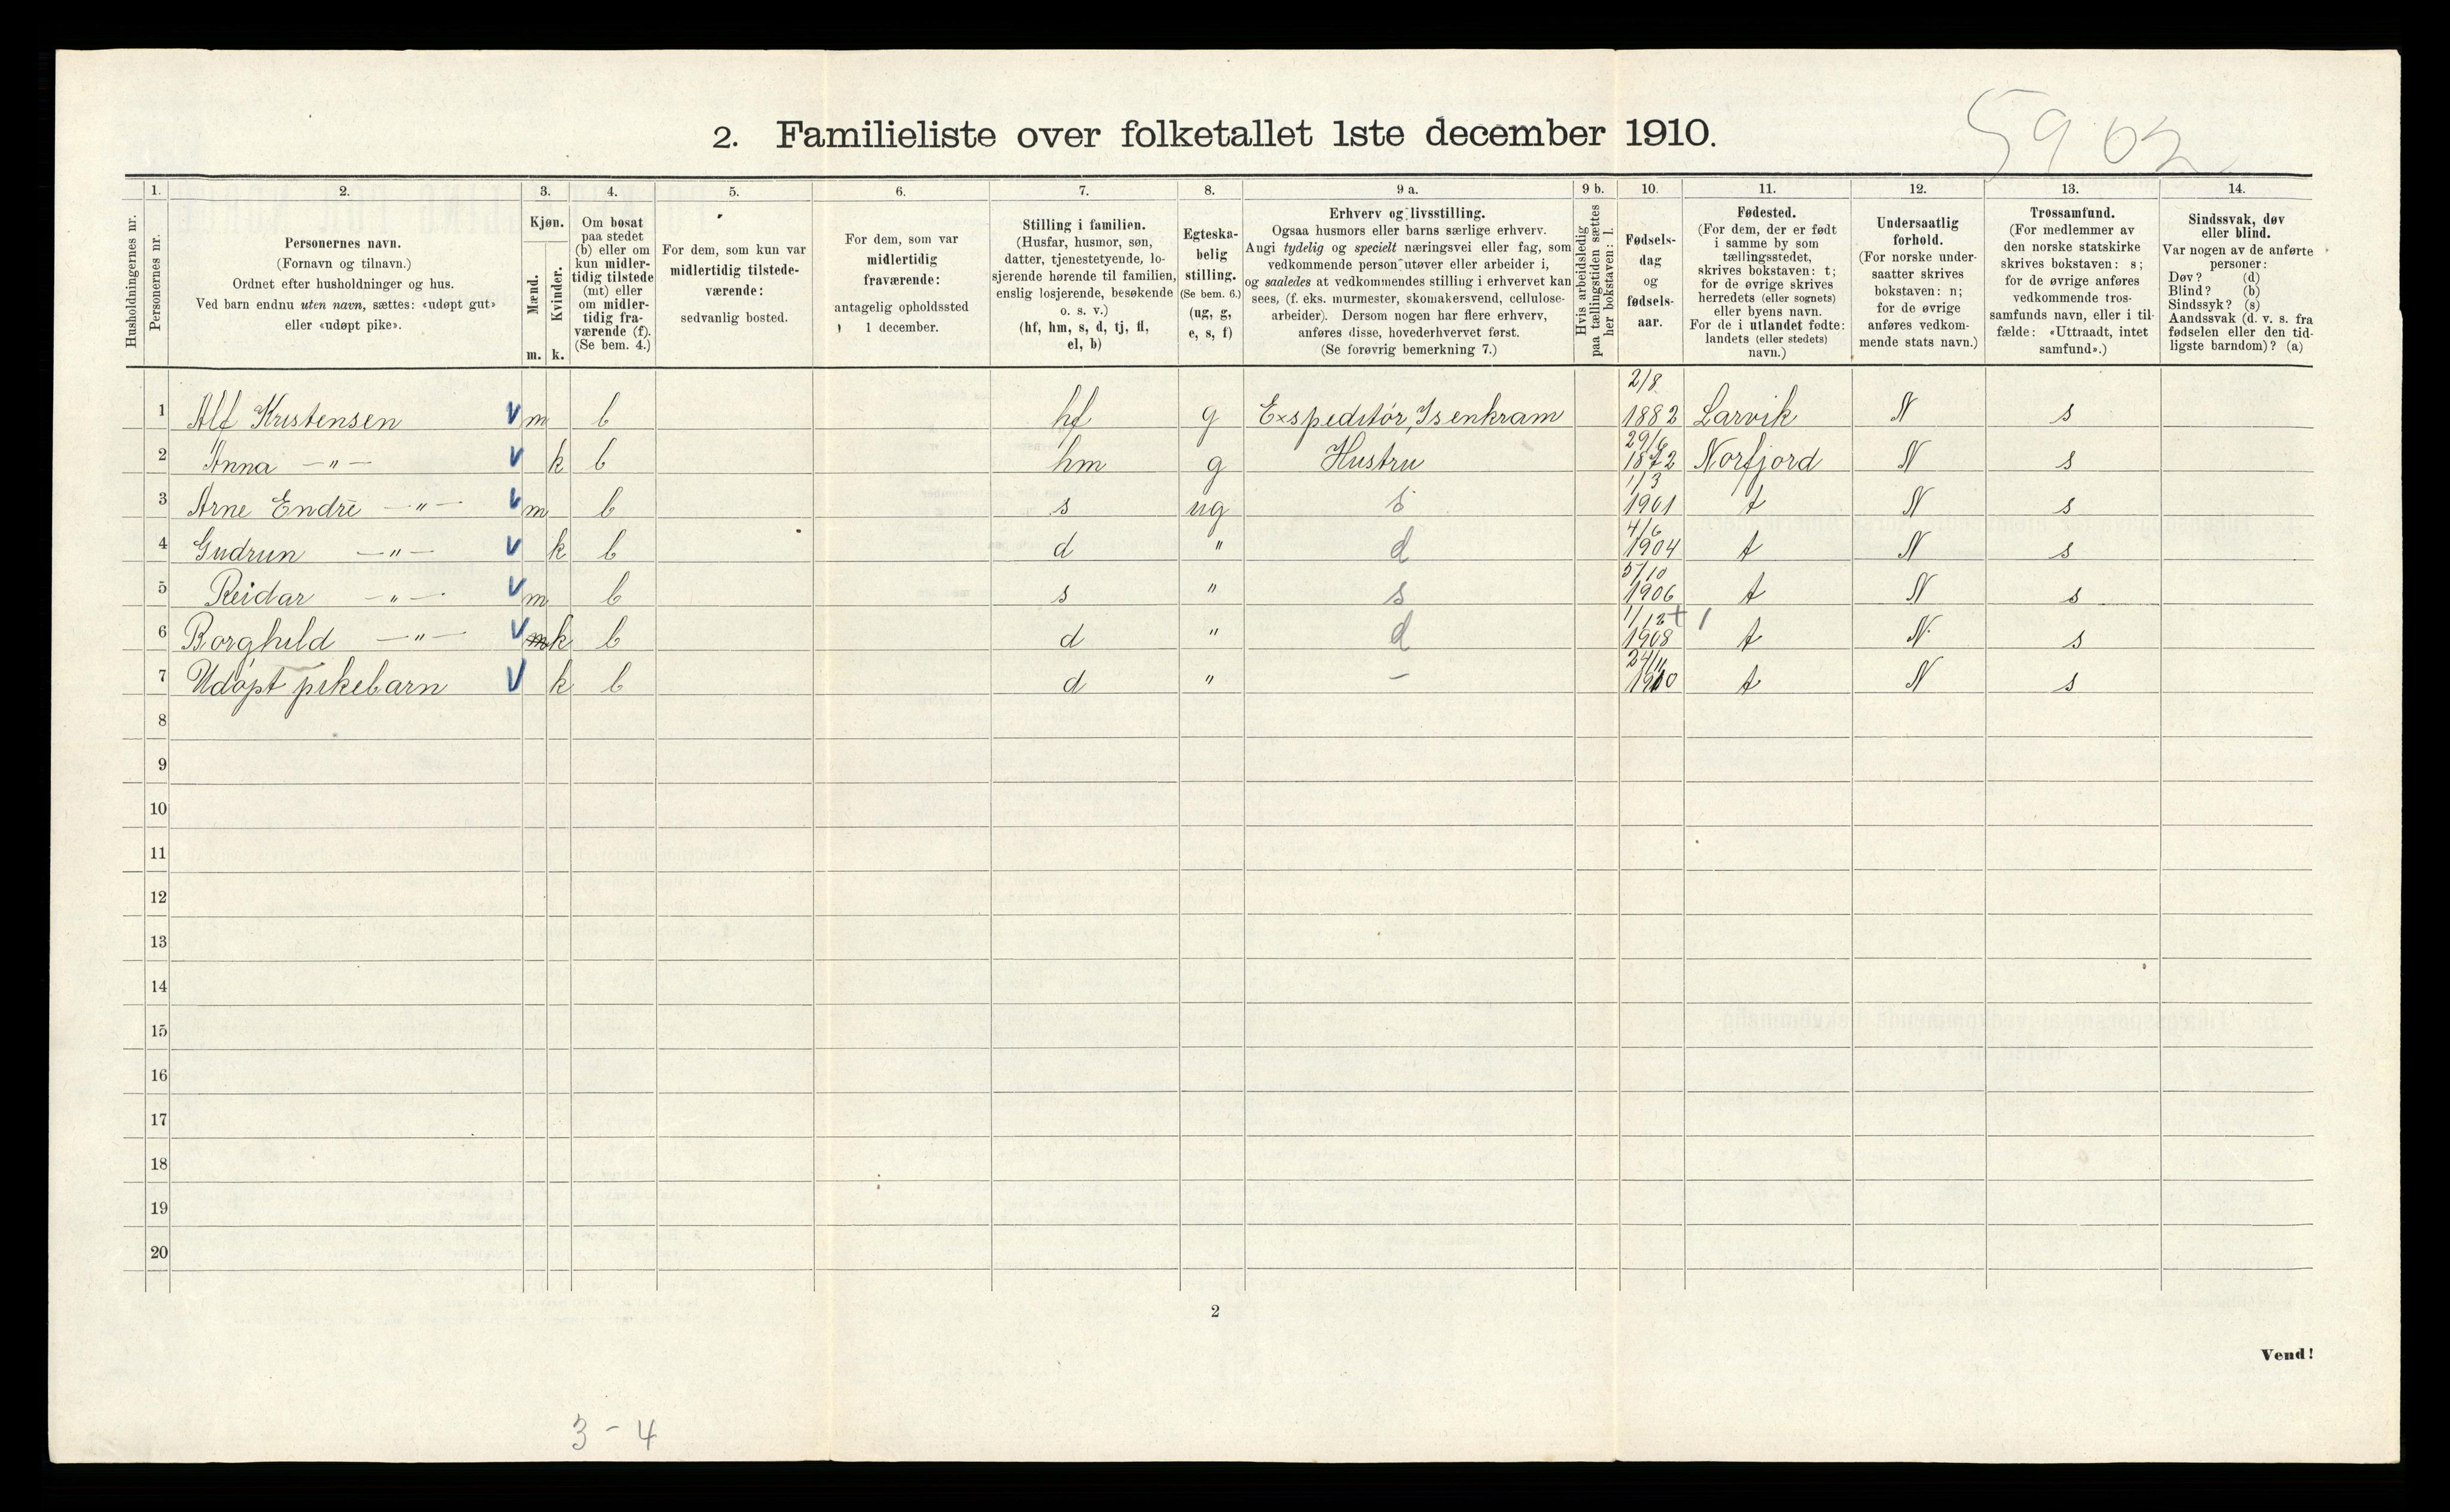 5902
2. Familieliste over folketallet 1ste december 1910.
Husholdningernes nr.
1. 2. 3. 4. 5. 6. 7. 8. 9 a. 9 b. 10. 11. 12. 13. 14.
Personernes nr.
Personernes navn.
(Fornavn og tilnavn.)
Ordnet efter husholdninger og hus.
Ved barn endnu uten navn, sættes: «udøpt gut»
eller «udøpt pike».
Kjøn.
Mænd.
Kvinder.
m. k.
Om bosat
paa stedet
(b) eller om
kun midler-
tidig tilstede
(mt) eller
om midler-
tidig fra-
værende (f).
(Se bem. 4.)
For dem, som kun var
midlertidig tilstede-
værende:
sedvanlig bosted.
For dem, som var
midlertidig
fraværende:
antagelig opholdssted
1 december.
Stilling i familien.
(Husfar, husmor, søn,
datter, tjenestetyende, lo-
sjerende hørende til familien,
enslig losjerende, besøkende
o. s. v.)
(hf, hm, s, d, tj, fl,
el, b)
Egteska-
belig
stilling.
(Se bem. 6.)
(ug, g,
e, s, f)
Erhverv og livsstilling.
Ogsaa husmors eller barns særlige erhverv.
Angi tydelig og specielt næringsvei eller fag, som
vedkommende person utøver eller arbeider i,
og saaledes at vedkommendes stilling i erhvervet kan
sees, (f. eks. murmester, skomakersvend, cellulose-
arbeider). Dersom nogen har flere erhverv,
anføres disse, hovederhvervet først.
(Se forøvrig bemerkning 7.)
Hvis arbeidsledig
paa tællingstiden sættes
her bokstaven: l.
Fødsels-
dag
og
fødsels-
aar.
Fødested.
(For dem, der er født
i samme by som
tællingsstedet,
skrives bokstaven: t;
for de øvrige skrives
herredets (eller sognets)
eller byens navn.
For de i utlandet fødte:
landets (eller stedets)
navn.)
Undersaatlig
forhold.
(For norske under-
saatter skrives
bokstaven: n;
for de øvrige
anføres vedkom-
mende stats navn.)
Trossamfund.
(For medlemmer av
den norske statskirke
skrives bokstaven: s;
for de øvrige anføres
vedkommende tros-
samfunds navn, eller i til-
fælde: «Uttraadt, intet
samfund».)
Sindssvak, døv
eller blind.
Var nogen av de anførte
personer:
Døv? (d)
Blind? (b)
Sindssyk? (s)
Aandssvak (d. v. s. fra
fødselen eller den tid-
ligste barndom)? (a)
1 Alf Kristensen V m b hf g Expeditór, Isenkram 2/8 1882 Larvik N s
2 Anna —"— V k b hm g Hustru 29/6 1872 Norfjord N s
3 Arne Endre —"— V m b s ug s 1/3 1901 t N s
4 Gudrun —"— V k b d " d 4/6 1904 t N s
5 Reidar —"— V m b s " s 5/10 1906 t N s
6 Borghild —"— V m k b d " d 1/12 1908 + 1 t N s
7 Udøpt pikebarn V k b d " — 24/11 1910 t N s
8
9
10
11
12
13
14
15
16
17
18
19
20
2
Vend!
3 - 4